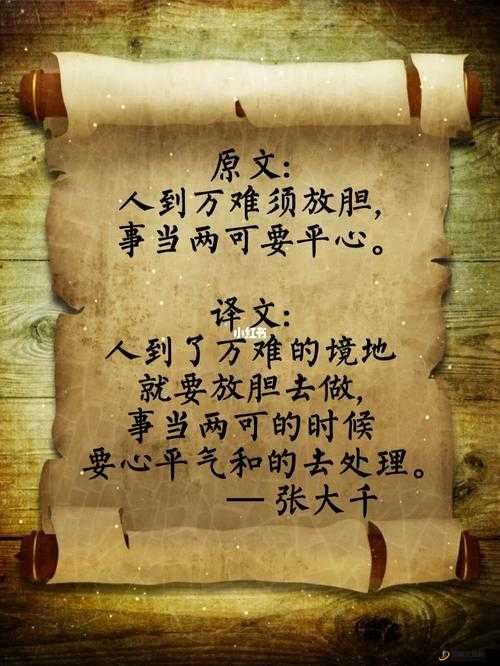 原文:
人到万难须放胆,
事当两可要平心。
小红书
译文:
人到了万难的境地
就要放胆去做,
事当两可的时候
要心平气和的去处理。
— 张大千